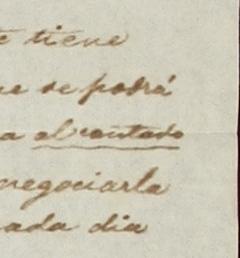 e tiene
ue se podrá
a al contado
negociarla
ada dia